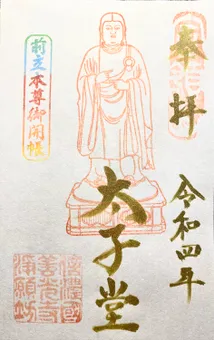 奉拝
令和四年
太子堂
前立本尊御開帳
信濃國
善光寺
淨願坊